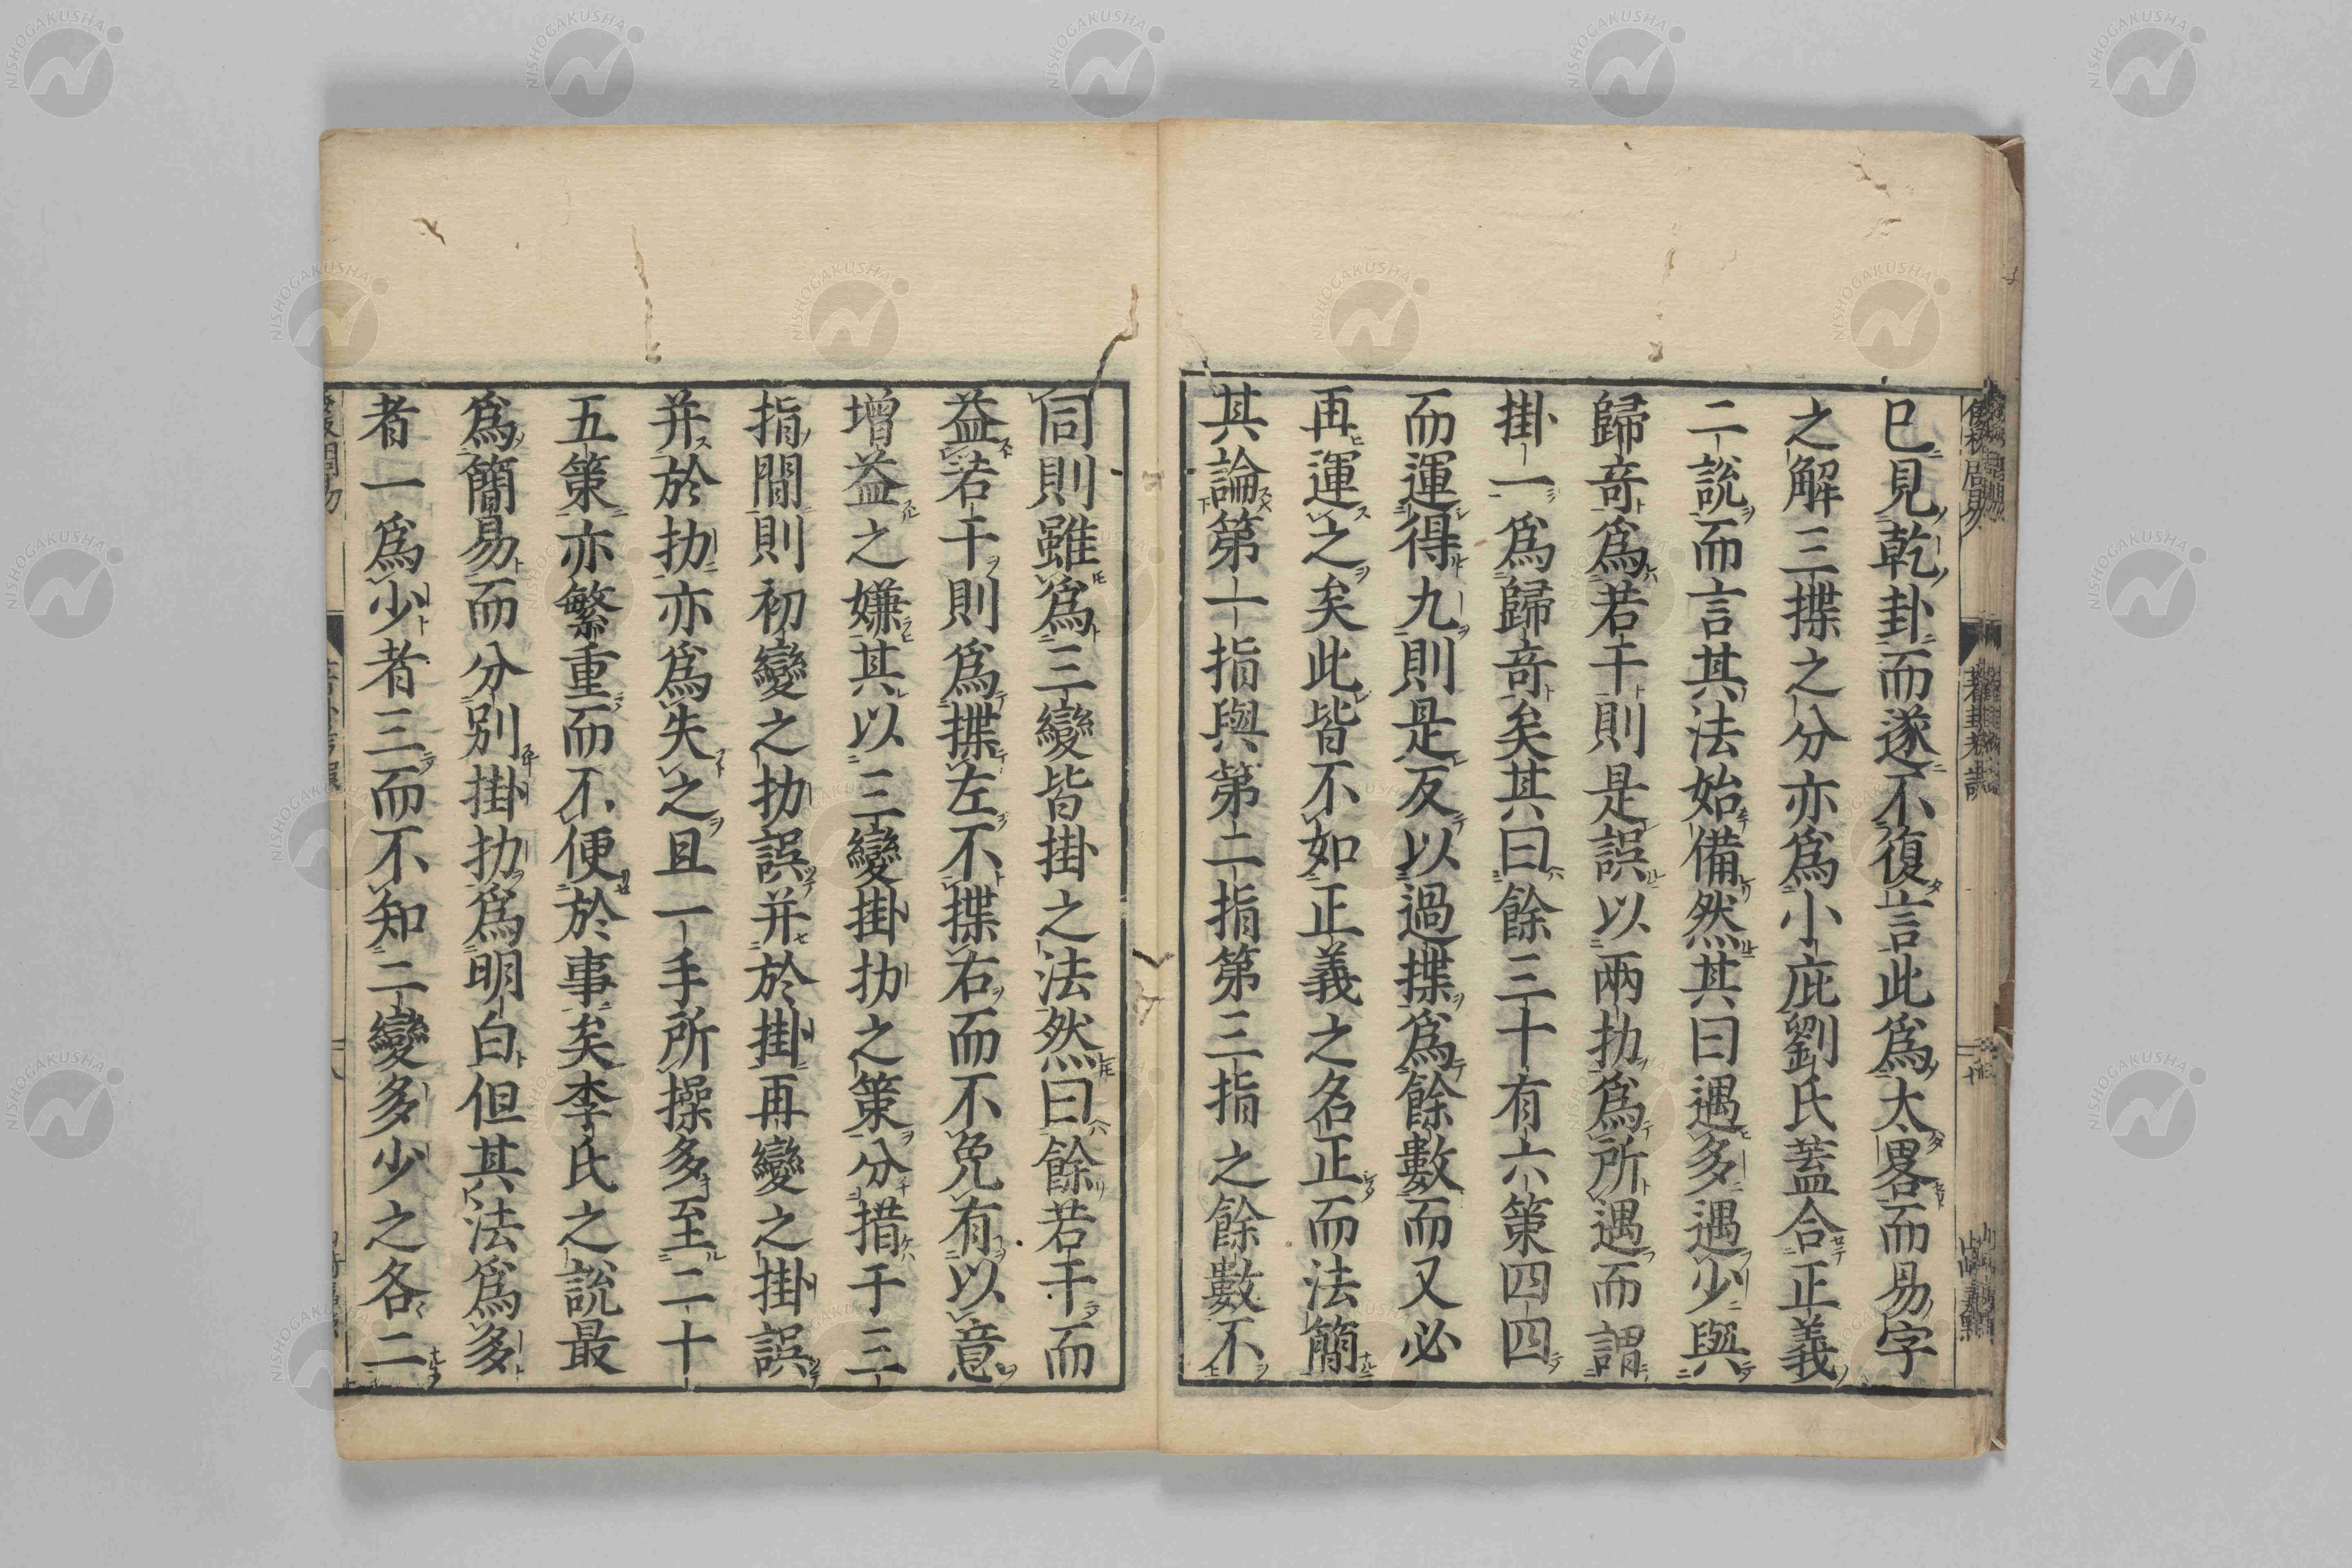 已見乾卦而遂不復言此爲太畧而易字
之解三揲之分亦爲小庇劉氏蓋合正義
二說而言其法始備然其曰遇多遇少與
歸竒爲若干則是誤以兩扐爲所遇而謂
掛一爲歸竒矣其曰餘三十有六策四四
而運得九則是反以過揲爲餘數而又必
再運之矣此皆不如正義之名正而法簡
其論第一指與第二指第三指之餘數不
同則雖爲三變皆掛之法然曰餘若干而
益若干則爲揲左不揲右而不免有以意
增益之嫌其以三變掛扐之策分措于三
指間則初變之扐誤并於掛再變之掛誤
并於扐亦爲失之且一手所操多至二十
五策亦繁重而不便於事矣李氏之說最
爲簡易而分別掛扐爲明白但其法爲多
者一爲少者三而不知二變多少之各二